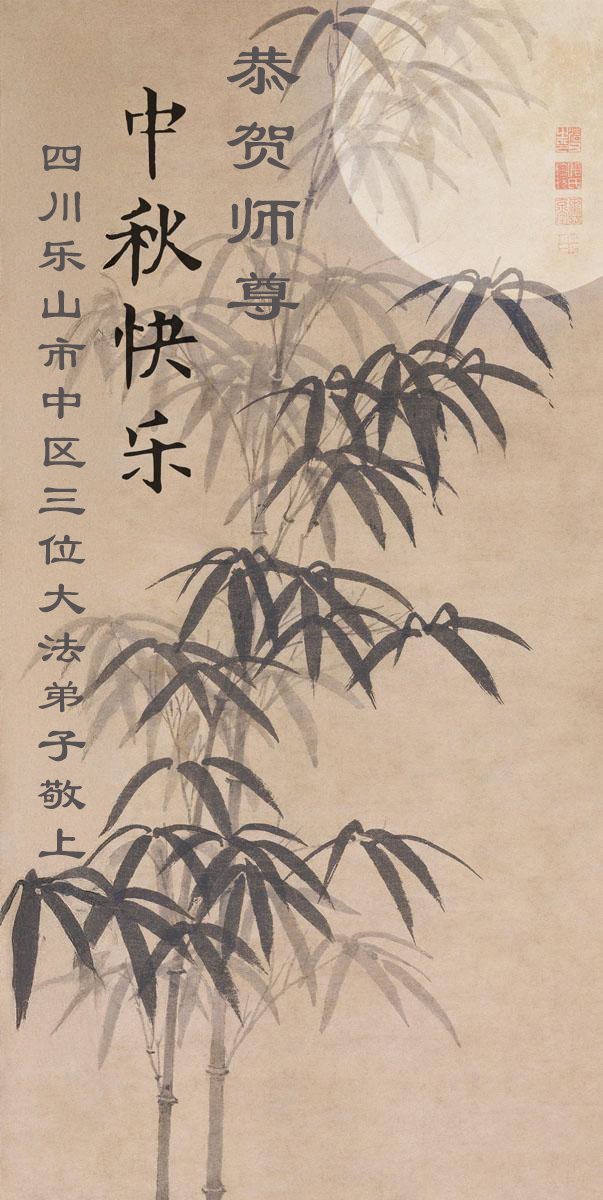 恭贺师尊
中秋快乐
四川乐山市中区三位大法弟子敬上